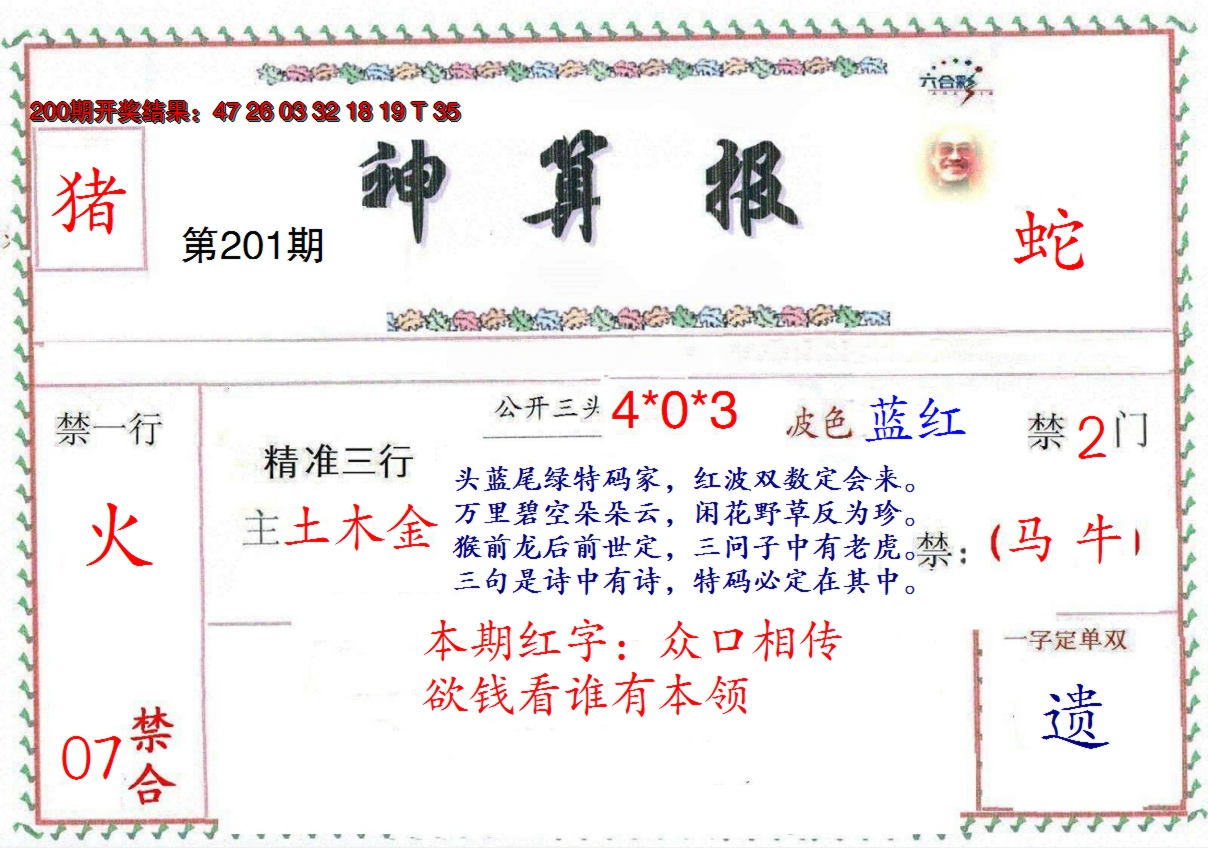 六合彩
200期开奖结果：47 26 03 32 18 19 T 35
神算报
猪
第201期
蛇
公开三头 4*0*3
波色 蓝红
禁2门
禁一行
精准三行
火
主土木金
头蓝尾绿特码家，红波双数定会来。
万里碧空朵朵云，闲花野草反为珍。
猴前龙后前世定，三问子中有老虎。
三句是诗中有诗，特码必定在其中。
禁：（马 牛）
本期红字：众口相传
欲钱看谁有本领
一字定单双
遗
07禁合